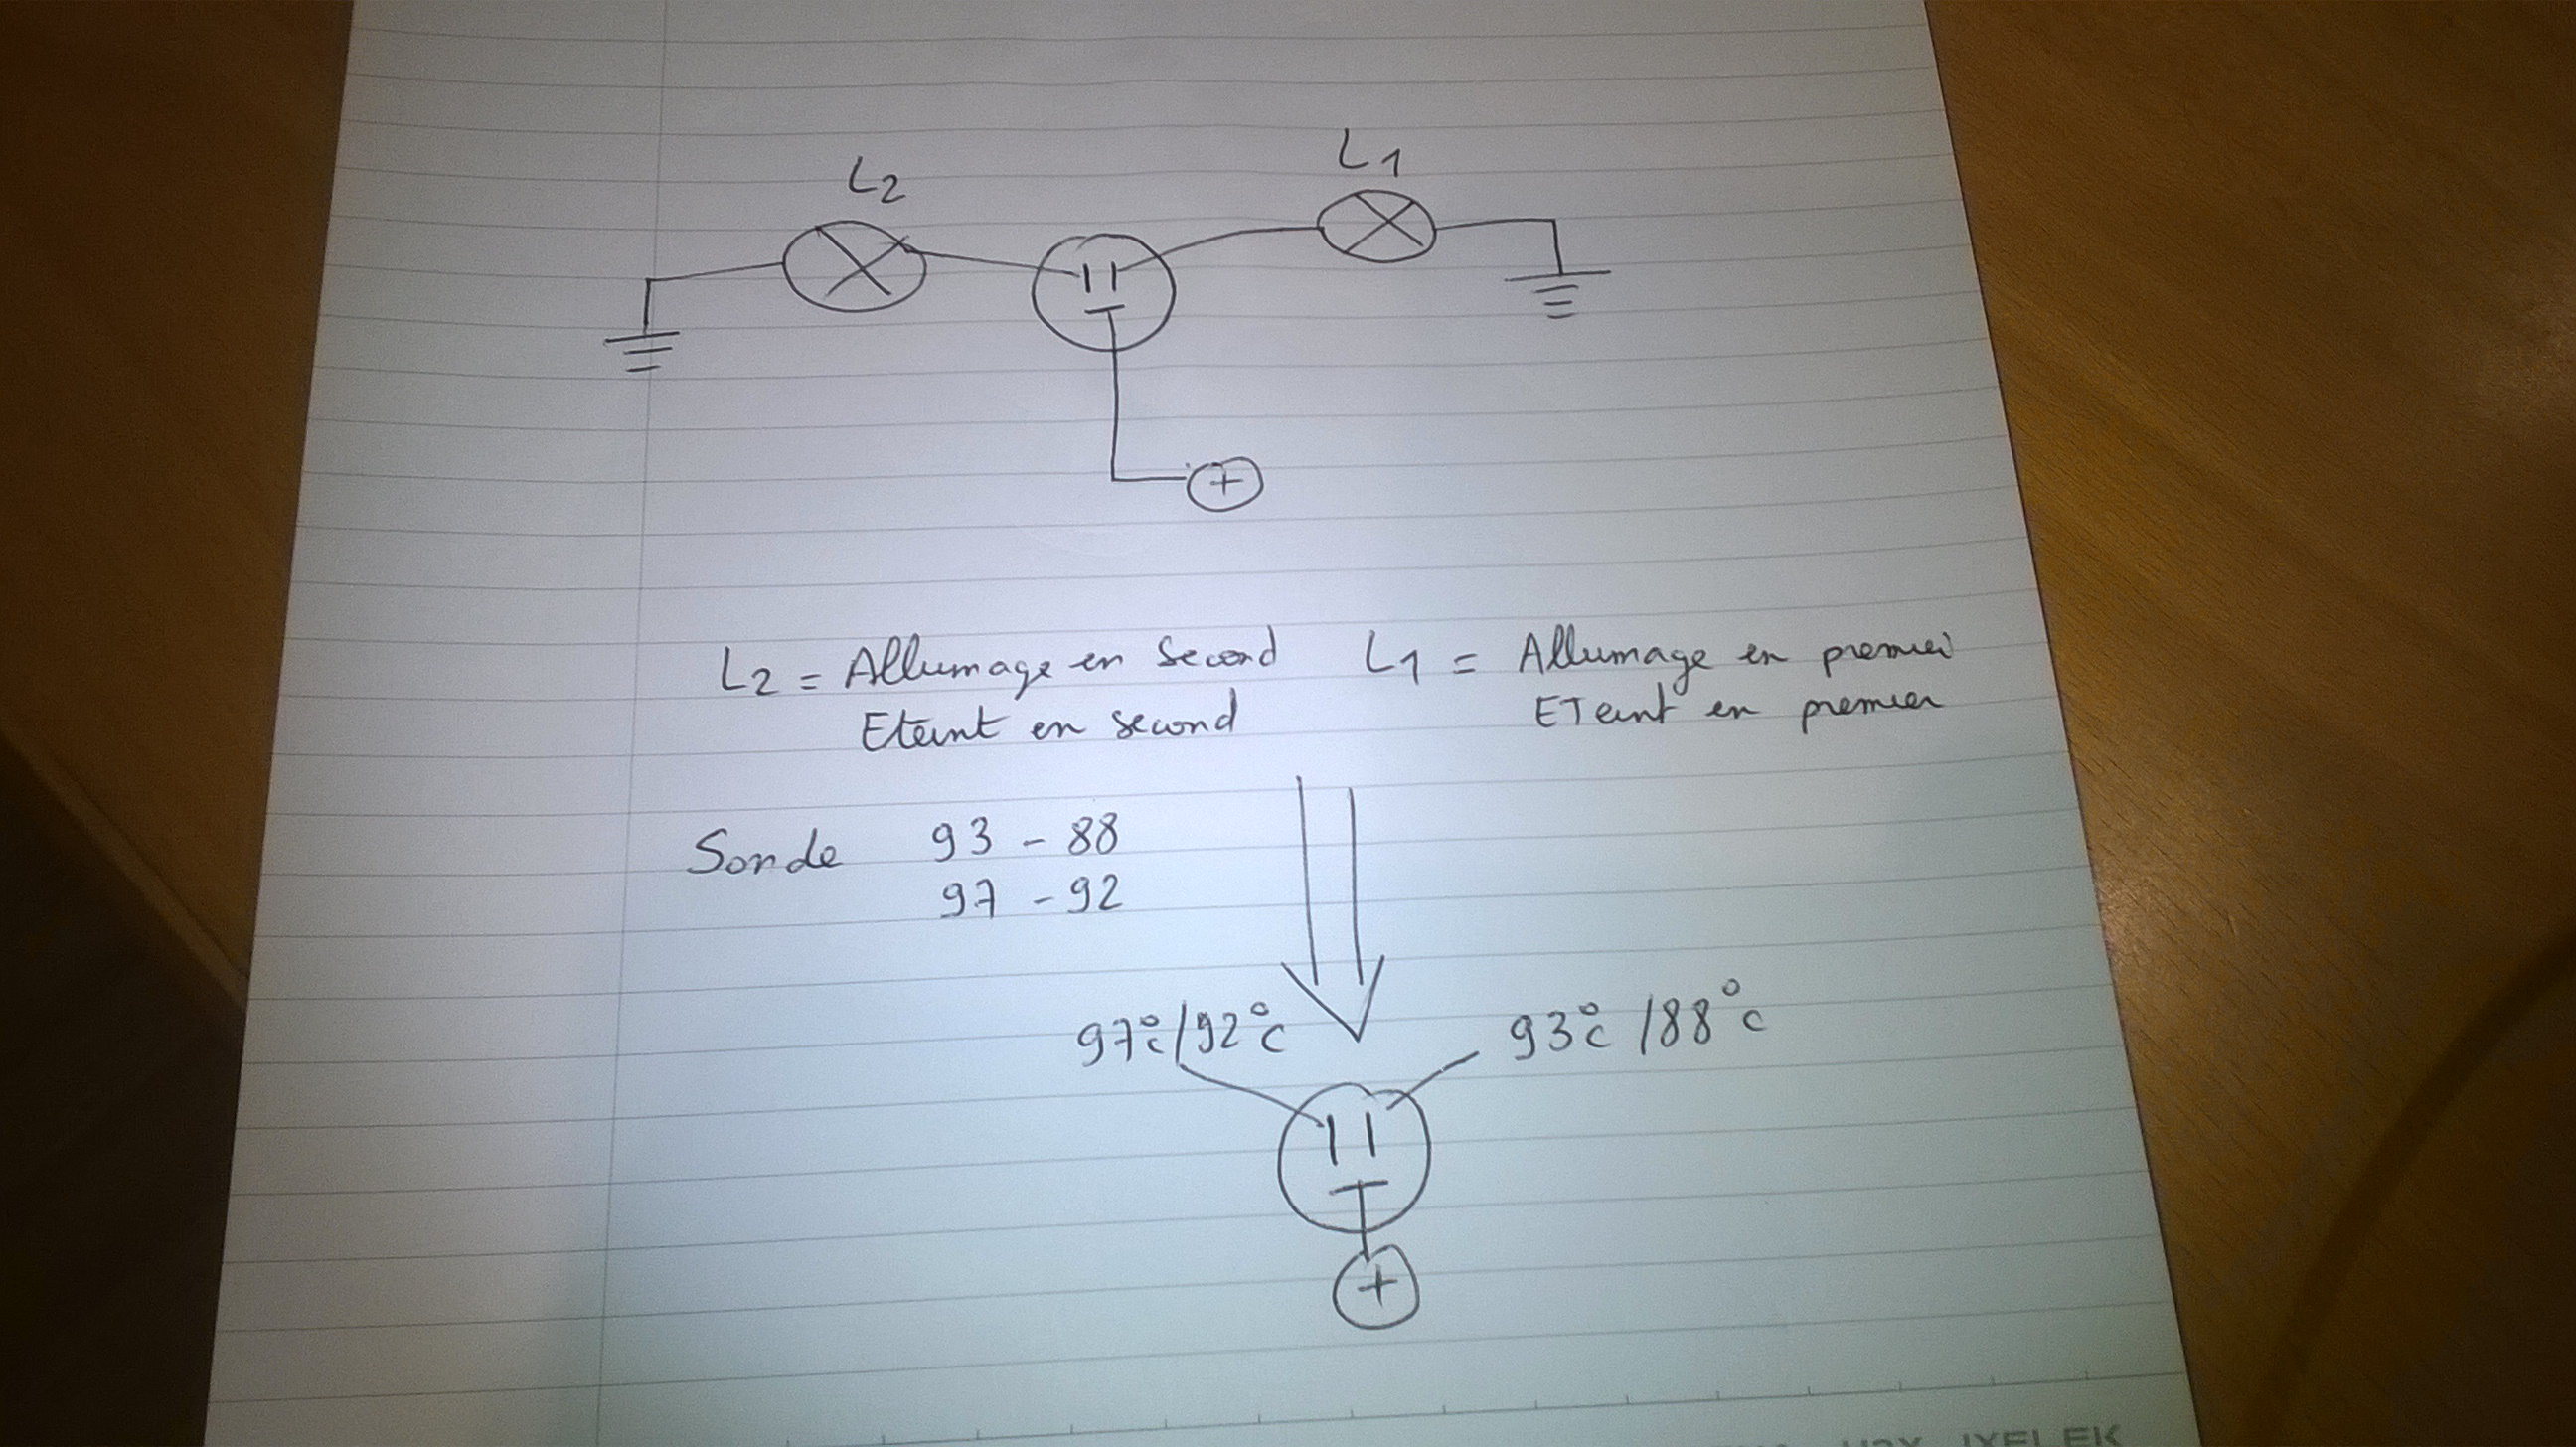 L2
L1
+
L2 = Allumage en second
Eteint en second
L1 = Allumage en premier
ETeint en premier
Sonde 93 - 88
97 - 92
97°c/92°c
93°c/88°c
+